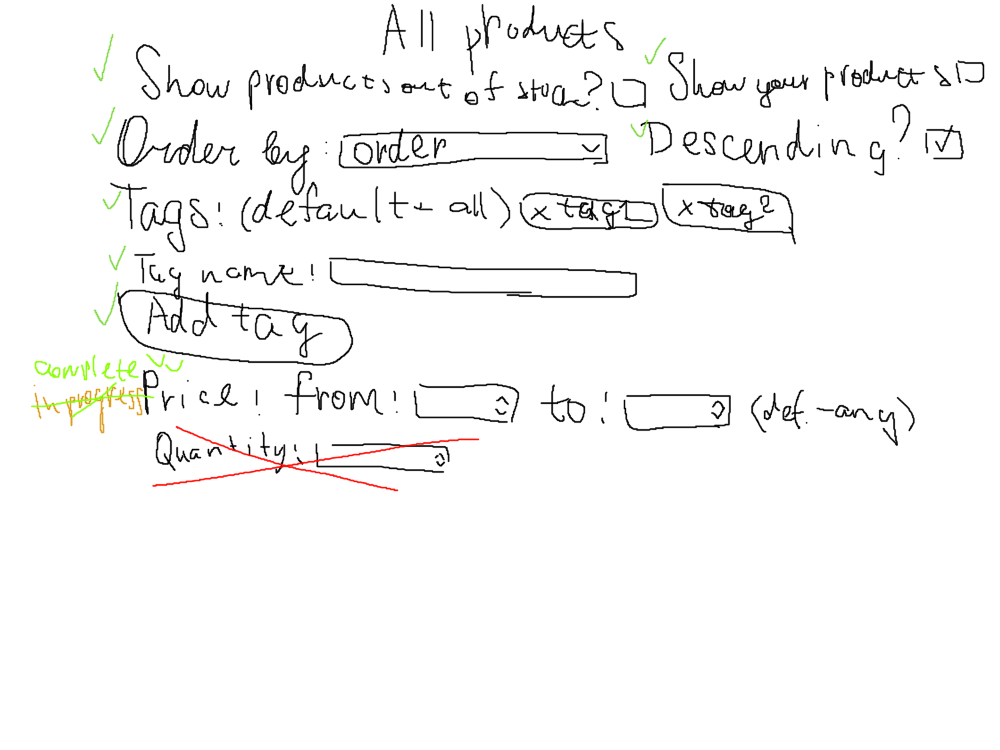 All products
Show products out of stock? Show your products
Order by: order Descending?
Tags: (default - all) x tag1 x tag2
Tag name:
Add tag
complete
in progress Price: from: to: (def. - any)
Quantity: